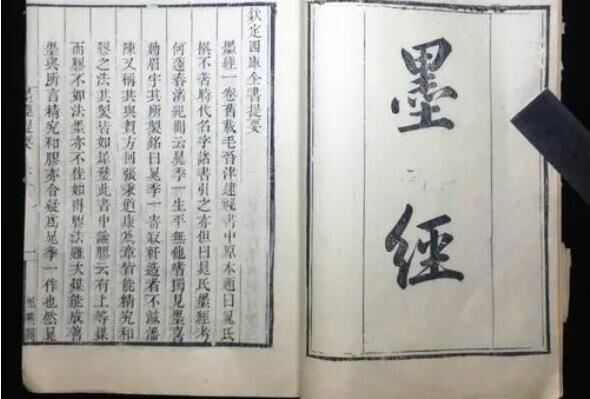 墨經
欽定四庫全書提要
墨經一卷舊載毛晉津逮祕書中原本題曰晁氏
撰不著時代名字諸書引之亦但曰晁氏墨經考
何薳春渚紀聞云晁季一生平無他嗜獨見墨喜
動眉宇其所製銘曰晁季一寄寂軒造者不減潘
陳又稱其與賀方回張秉道康爲章皆能精究和
膠之法其製皆如犀璧此書中論膠云有上等煤
而膠不如法墨亦不佳如得膠法雖次煤能成善
墨與所言精究和膠亦合疑爲晁季一作也然晁
墨經提要
一